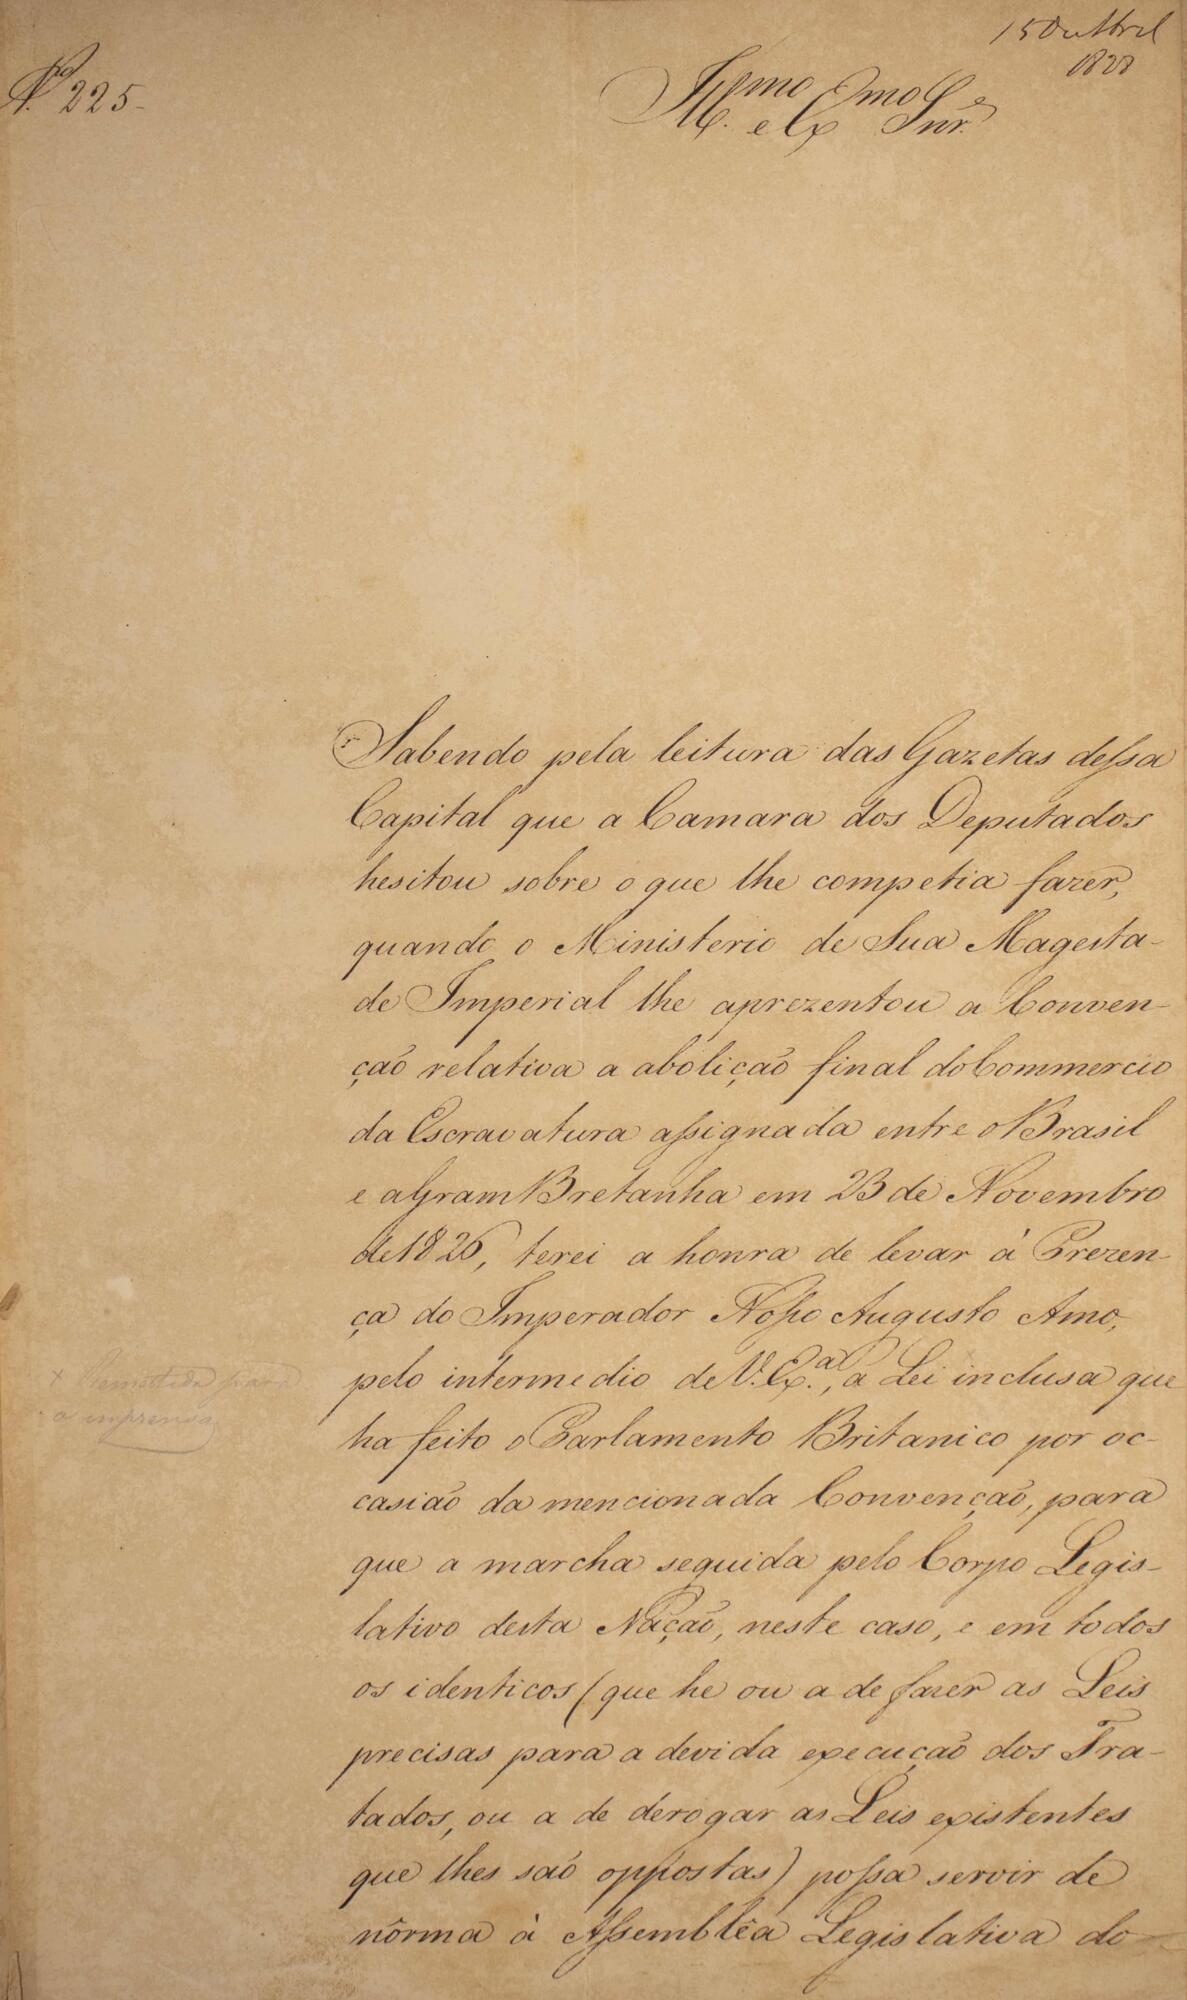 N.ro 225-
15 de Abril
1828
Ill.mo e Ex.mo Snr.
Sabendo pela leitura das Gazetas dessa
Capital que a Camara dos Deputados
hesitou sobre o que lhe competia fazer,
quando o Ministerio de Sua Magesta-
de Imperial lhe aprezentou a Conven-
ção relativa a abolição final do Commercio
da Escravatura assignada entre o Brasil
e a Gram Bretanha em 23 de Novembro
de 1826, terei a honra de levar á Prezen-
ça do Imperador Nosso Augusto Amo,
pelo intermedio de V. Ex.a, a Lei inclusa que
ha feito o Parlamento Britanico por oc-
casião da mencionada Convenção, para
que a marcha seguida pelo Corpo Legis-
lativo desta Nação, neste caso, e em todos
os identicos (que he ou a de fazer as Leis
precisas para a devida execução dos Tra-
tados, ou a de derogar as Leis existentes
que lhes são oppostas) possa servir de
nôrma à Assemblêa Legislativa do
x Remettida para
a imprensa